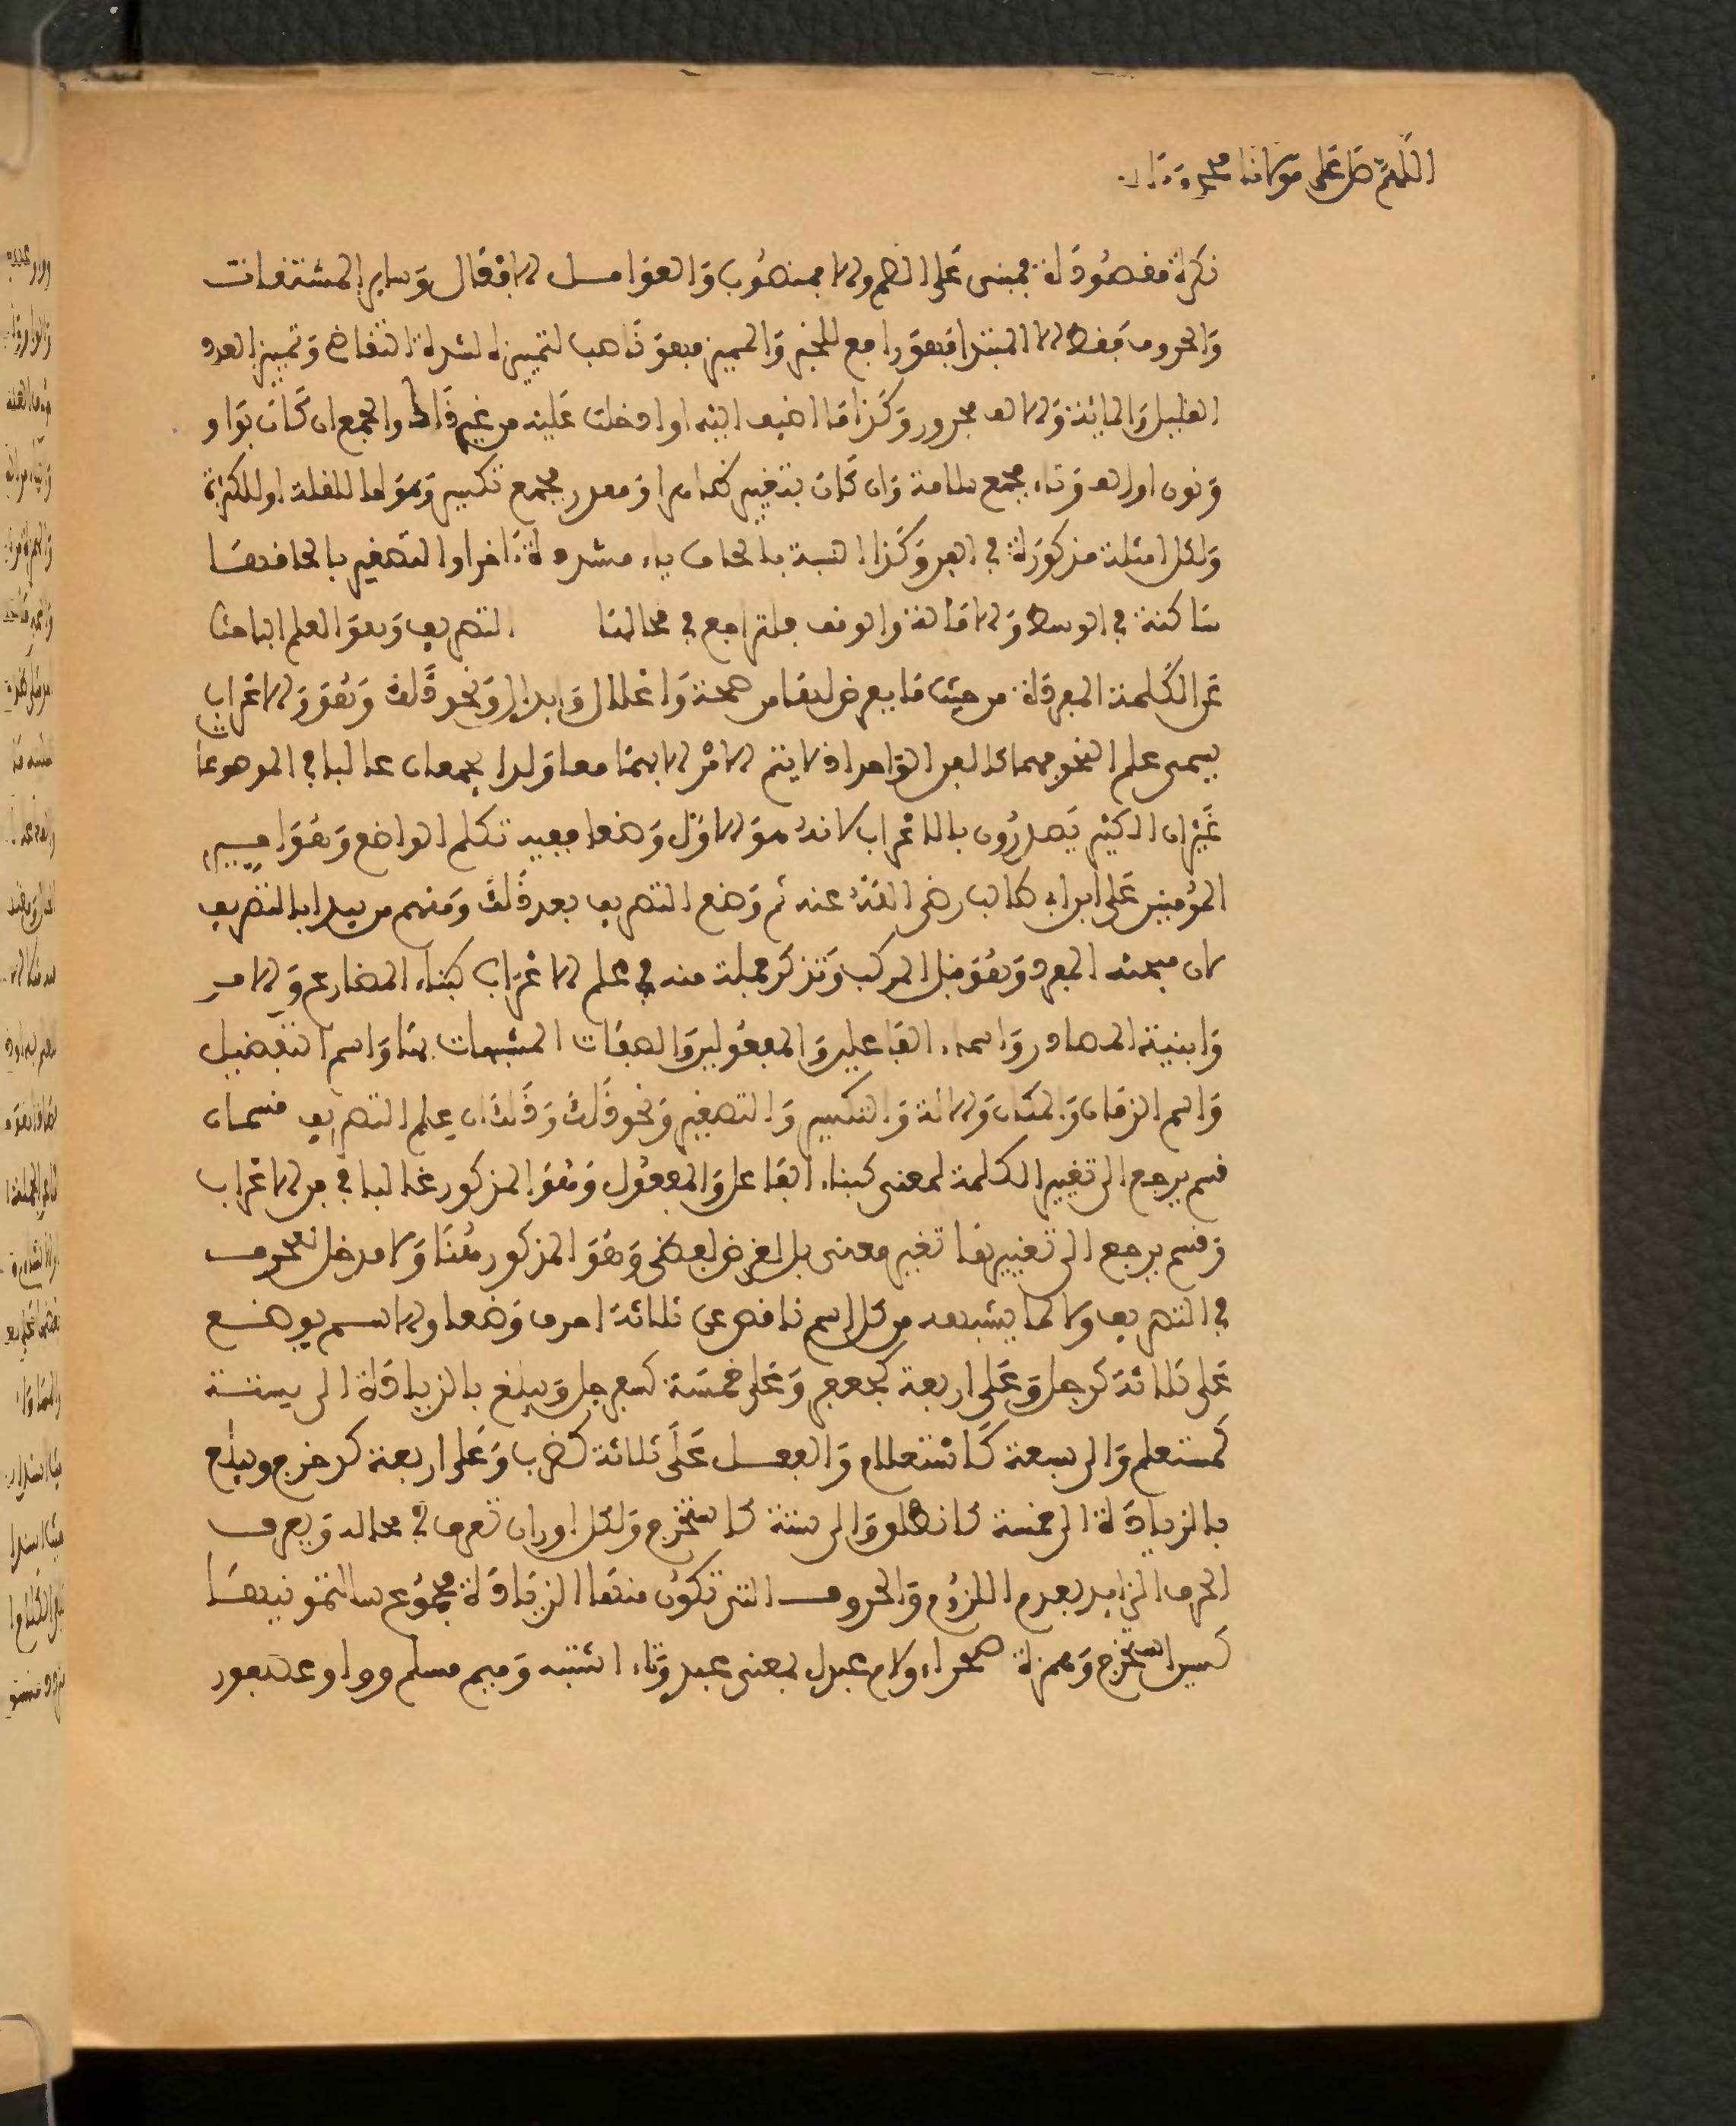 اللهم صل على مولانا محمد وءاله
نكرة مقصودة فمبني على الضم والا فمنصوب والعوامل الافعال وساير المشتقات
والحروف فقط الا المبتدا فهو رافع للخبر والمميز فهو ناصب لتمييزه لشدة التقاضي وتمييز العدد
القليل والمائة والالف مجرور وكذا ما اضيف اليه او ادخلت عليه من غير ذلك والجمع ان كان بواو
ونون او الف وتاء فجمع سلامة وان كان بتغيير ظاهر او مقدر فجمع تكسير وهو اما للقلة او للكثرة
ولكل امثلة مذكورة في الفن وكذا النسبة بالحاق ياء مشددة ءاخرا والتصغير بالحاقها
ساكنة في الوسط والامالة والوقف فلتراجع في محالها التصريف وهو العلم الباحث
عن الكلمة المفردة من حيث ما يعرض لها من صحة واعلال وابدال ونحو ذلك وهو والاعراب
يسمى علم النحو فهما كالفن الواحد اذ لا يتم الامر الا بهما معا ولذا يجمعان غالبا في الموضوعات
غير ان الكثير يصدرون بالاعراب لانه هو الاول وضعا ففيه تكلم الواضع وهو امير
المؤمنين على ابن ابي طالب رضي الله عنه ثم وضع التصريف بعد ذلك ومنهم من يبدا بالتصريف
لان مبحثه المفرد وهو قبل المركب وتذكر جملة منه في علم الاعراب كبناء المضارع والامر
وابنية المصادر واسماء الفاعلين والمفعولين والصفات المشبهات بها واسم التفضيل
واسم الزمان والمكان والالة والتكسير والتصغير ونحو ذلك وذلك ان علم التصريف قسمان
قسم يرجع الى تغيير الكلمة لمعنى كبناء الفاعل والمفعول وهو المذكور غالبا في فن الاعراب
وقسم يرجع الى تغييرها لغير معنى بل لغرض لفظي وهو المذكور هنا ولا مدخل للحروف
في التصريف ولا لما يشبهه من كل اسم ناقص عن ثلاثة احرف وضعا والاسم يوضع
على ثلاثة كرجل وعلى اربعة كجعفر وعلى خمسة كسفرجل ويبلغ بالزيادة الى ستة
كمستعلم والى سبعة كاستعلام والفعل على ثلاثة كضرب وعلى اربعة كدحرج ويبلغ
بالزيادة الى خمسة كانطلق والى ستة كاستخرج ولكل اوزان تعرف في محاله ويعرف
الحرف الزايد بعدم اللزوم والحروف التي تكون منها الزيادة مجموع سالتمونيها
كسين استخرج وهمزة صحراء ولام عبدل بمعنى عبد وتاء اشتبه وميم مسلم وواو عصفور